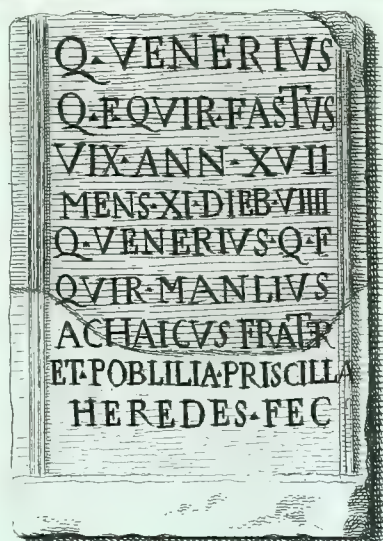 Q·VENERIVS
Q·F·QVIR·FASTVS
VIX·ANN·XVII
MENS·XI·DIEB·VIIII
Q·VENERIVS·Q·F
QVIR·MANLIVS
ACHAICVS FRATR
ET·POBLILIA·PRISCILLA
HEREDES·FEC